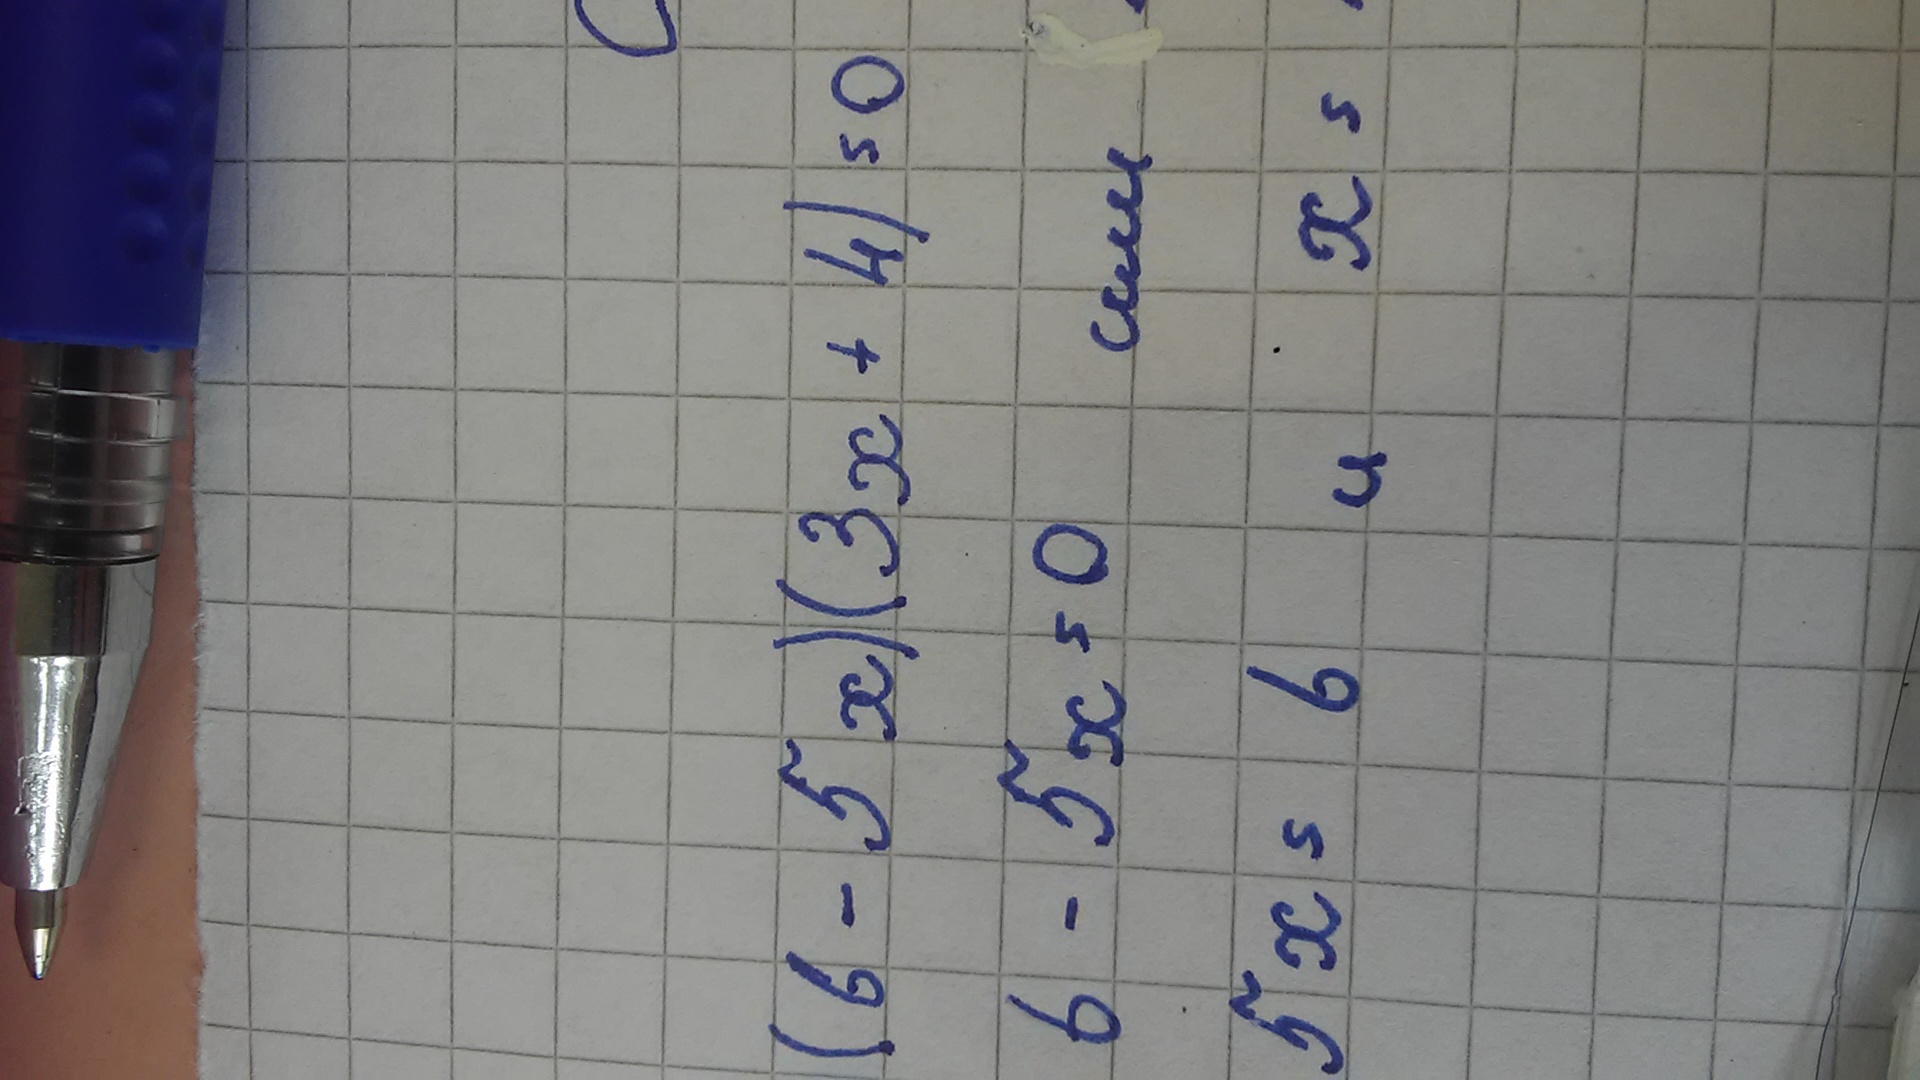 (6 - 5x)(3x + 4) = 0
6 - 5x = 0 или
5x = 6 и x =